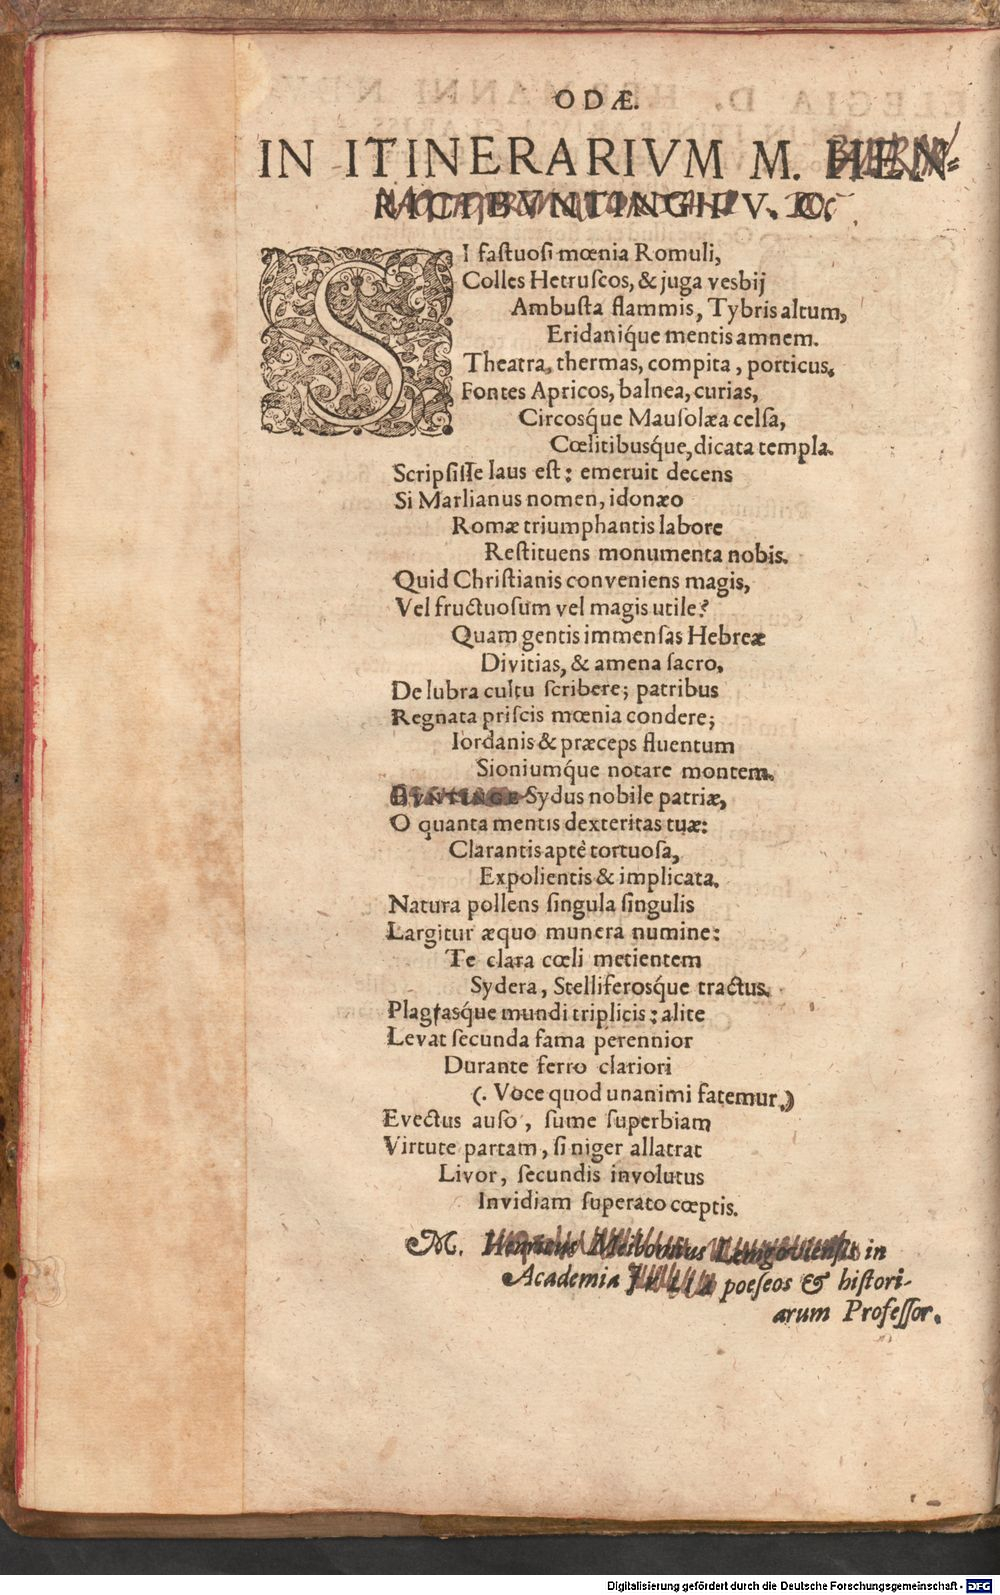 ODÆ.
IN ITINERARIVM M. HEN-
RICI BVNTINGHI V. C.
SI faſtuoſi mœnia Romuli,
Colles Hetruſcos, & juga vesbij
Ambuſta flammis, Tybris altum,
Eridaniq́ue mentis amnem.
Theatra, thermas, compita, porticus,
Fontes Apricos, balnea, curias,
Circosq́ue Mauſolæa celſa,
Cœlitibusq́ue, dicata templa.
Scripſiſſe laus eſt: emeruit decens
Si Marlianus nomen, idonæo
Romæ triumphantis labore
Reſtituens monumenta nobis.
Quid Chriſtianis conveniens magis,
Vel fructuoſum vel magis utile?
Quam gentis immenſas Hebreæ
Divitias, & amena ſacro,
De lubra cultu ſcribere; patribus
Regnata priſcis mœnia condere;
Iordanis & præceps fluentum
Sioniumq́ue notare montem.
BVNTINGE Sydus nobile patriæ,
O quanta mentis dexteritas tuæ:
Clarantis aptè tortuoſa,
Expolientis & implicata.
Natura pollens ſingula ſingulis
Largitur æquo munera numine:
Te clara cœli metientem
Sydera, Stelliferosq́ue tractus.
Plagtasq́ue mundi triplicis: alite
Levat ſecunda fama perennior
Durante ferro clariori
(. Voce quod unanimi fatemur.)
Evectus auſo, ſume ſuperbiam
Virtute partam, ſi niger allatrat
Livor, ſecundis involutus
Invidiam ſuperato cœptis.
M. Henricus Meibomius Lemgovienſis in
Academia Iulia poeſeos & hiſtori-
arum Profeſſor.
Digitalisierung gefördert durch die Deutsche Forschungsgemeinschaft - DFG